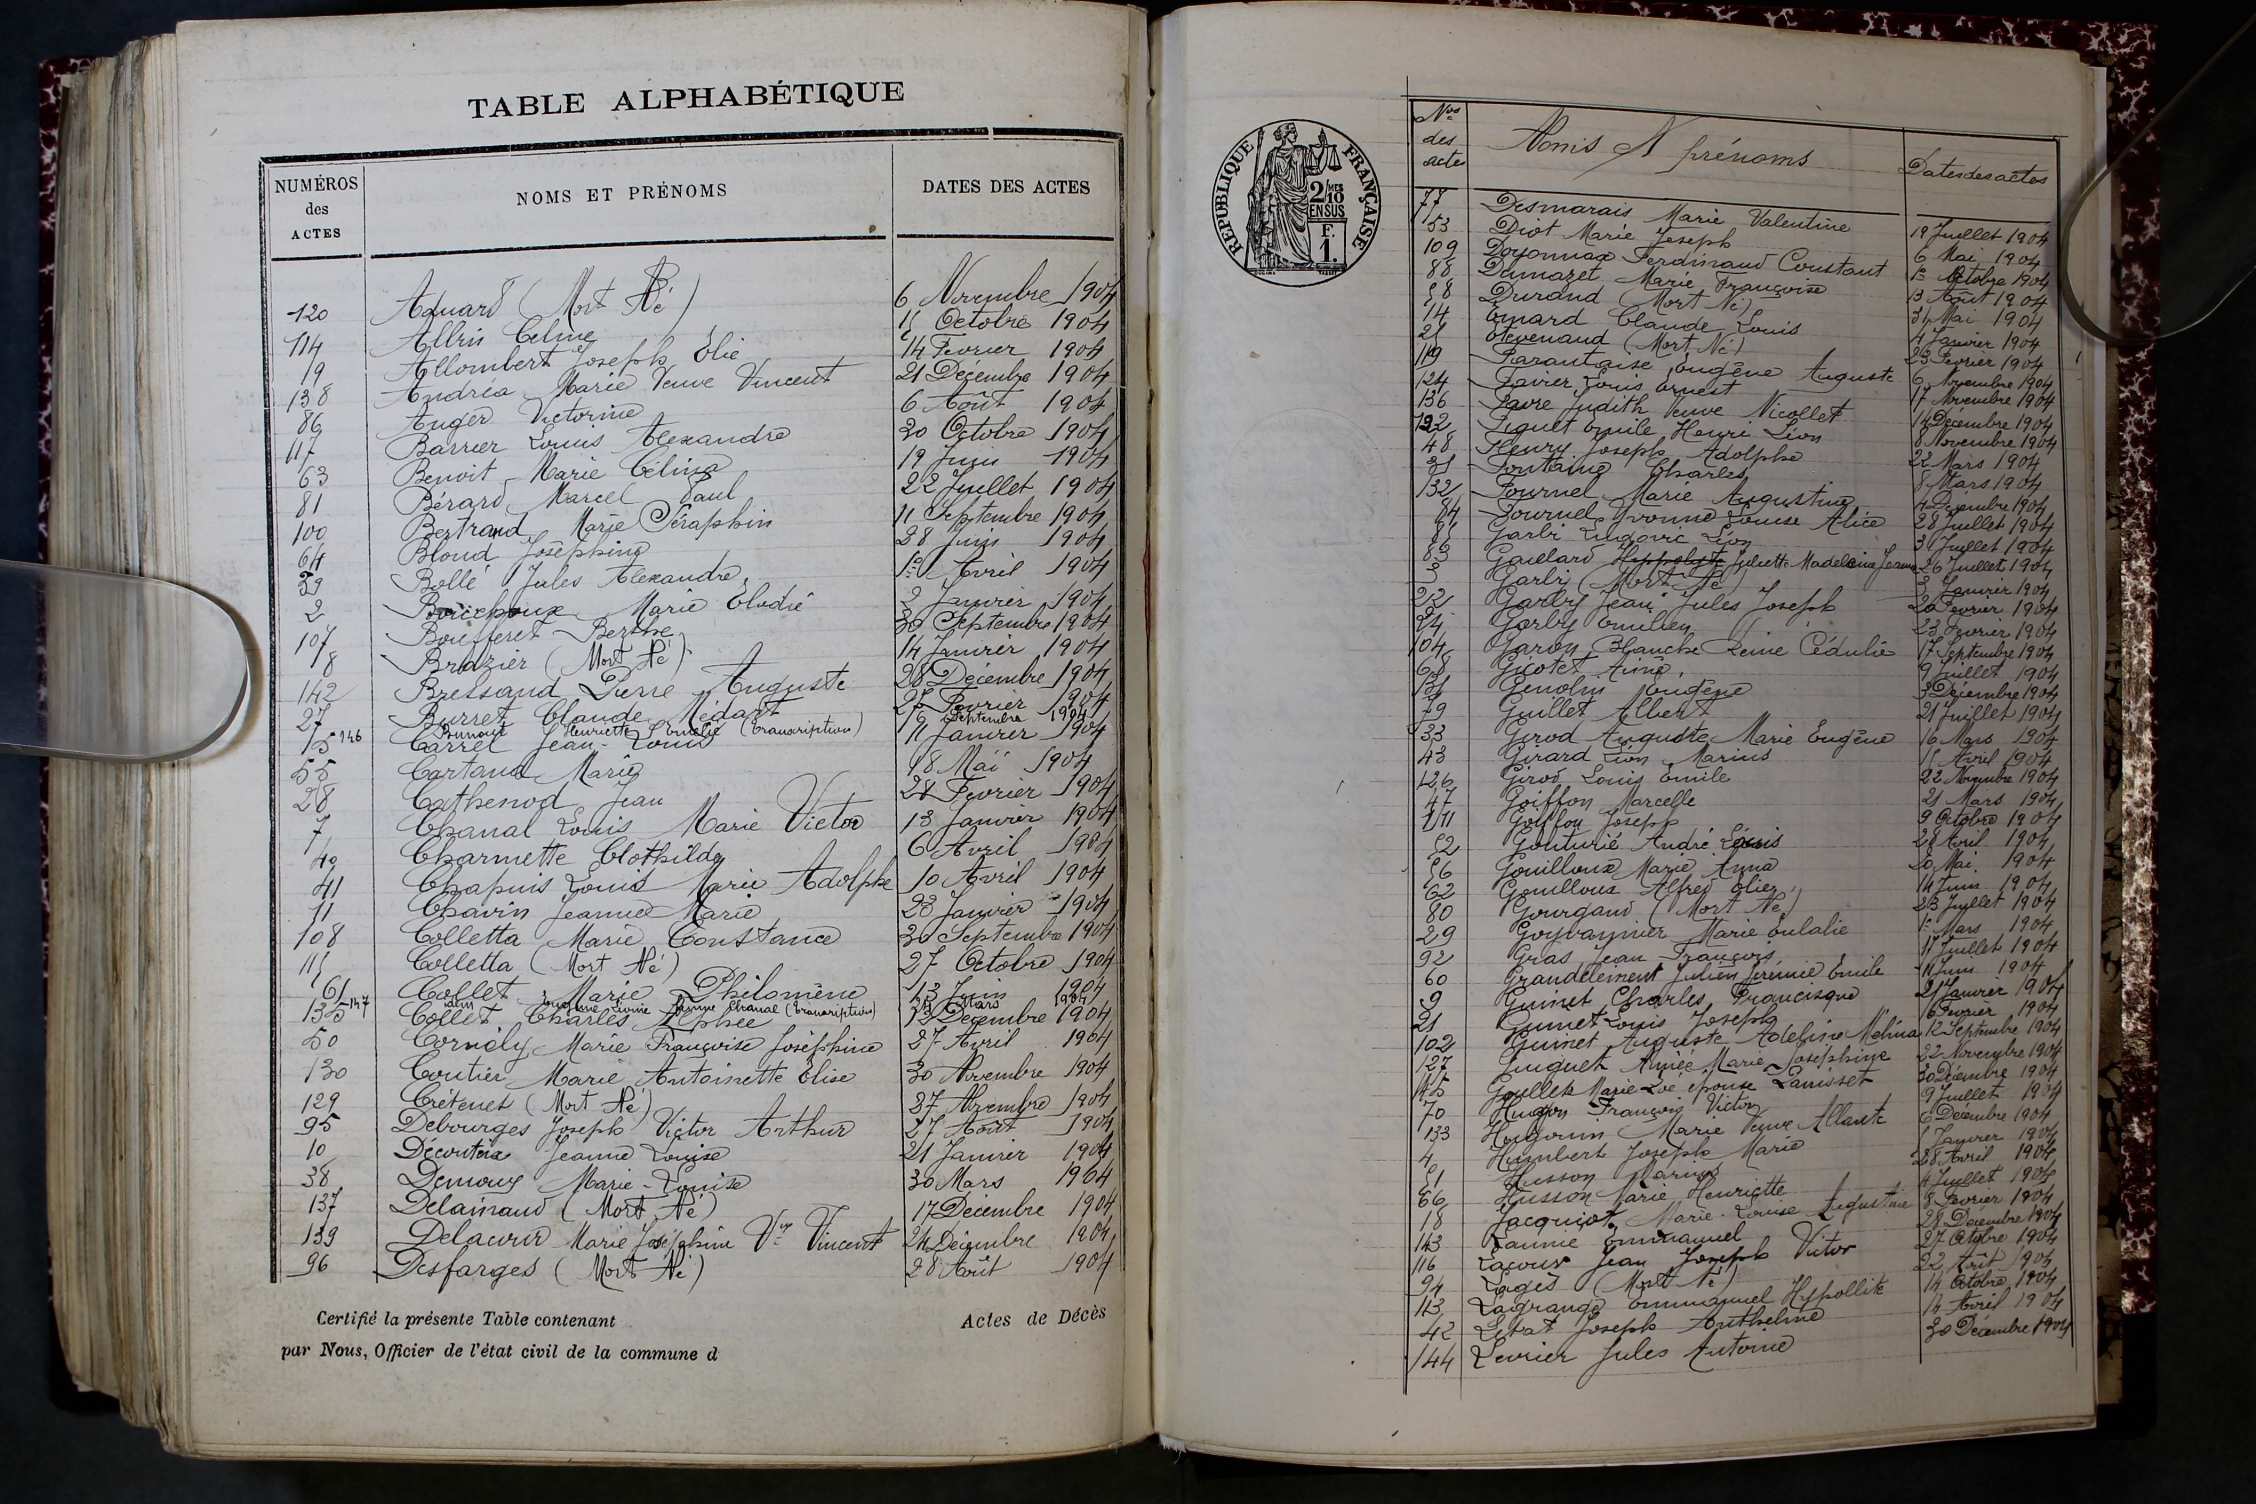 TABLE ALPHABÉTIQUE
NUMÉROS des ACTES NOMS ET PRÉNOMS DATES DES ACTES
120 Aduard (Mort Né) 6 Novembre 1904
114 Albin Céline 15 Octobre 1904
19 Allombert Joseph Elie 14 Fevrier 1904
138 Andréa Marie Veuve Vincent 21 Decembre 1904
86 Auger Victorine 6 Août 1904
117 Barrier Louis Alexandre 30 Octobre 1904
63 Benoit Marie Célina 19 Juin 1904
81 Bérard Marcel Paul 22 Juillet 1904
100 Bertrand Marie Séraphin 11 Septembre 1904
64 Blond Joséphine 28 Juin 1904
39 Bollé Jules Alexandre 1er Avril 1904
2 Marie Elodie 2 Janvier 1904
107 Boufferet Berthe 30 Septembre 1904
8 Brazier (Mort Né) 14 Janvier 1904
142 Bressand Pierre Auguste 28 Décembre 1904
27 Burret Claude Médart 25 Fevrier 1904
146 Brunout Henriette Emélie (transcription) 16 Septembre 1904
15 Carrel Jean-Louis 11 Janvier 1904
55 Cartand Marie 18 Mai 1904
28 Cathenod Jean 28 Fevrier 1904
7 Chanal Louis Marie Victor 13 Janvier 1904
40 Charmette Clothilde 6 Avril 1904
41 Chapuis Louis Marie Adolphe 10 Avril 1904
11 Chavin Jeanne Marie 23 Janvier 1904
108 Colletta Marie Constance 30 Septembre 1904
115 Colletta (Mort Né) 27 Octobre 1904
61 Collet Marie Philomène 13 Juin 1904
147 Livine femme Chanal (transcription) 24 Mars 1904
135 Collet Charles Alphée 12 Decembre 1904
50 Cornély Marie Françoise Joséphine 27 Avril 1904
130 Coutier Marie Antoinette Elise 30 Novembre 1904
129 Crétenet (Mort Né) 27 Novembre 1904
95 Debourges Joseph Victor Arthur 27 Août 1904
10 Jeanne Louise 21 Janvier 1904
38 Demouy Marie-Louise 30 Mars 1904
137 Delainaud (Mort Né) 17 Décembre 1904
139 Delacour Marie Joséphine Vve Vincent 24 Décembre 1904
96 Desfarges (Mort Né) 28 Août 1904
Certifié la présente Table contenant Actes de Décès
par Nous, Officier de l'état civil de la commune d
RÉPUBLIQUE FRANÇAISE
2/10 MES
EN SUS
F.
1.
Nos des acte Noms et prénoms Dates des actes
77 Desmarais Marie Valentine 19 Juillet 1904
53 Diot Marie Joseph 6 Mai 1904
109 Doyonnax Ferdinand Constant 1er Octobre 1904
88 Dumazet Marie Françoise 13 Août 1904
58 Durand (Mort Né) 31 Mai 1904
14 Emard Claude Louis 4 Janvier 1904
25 Etevenaud (Mort Né) 23 Fevrier 1904
119 Farantaise Eugène Auguste 6 Novembre 1904
124 Favier Louis Ernest 17 Novembre 1904
136 Favre Judith Veuve Nicollet 14 Décembre 1904
122 Figuet Emile Henri Léon 8 Novembre 1904
48 Fleury Joseph Adolphe 22 Mars 1904
31 Fontaine Charles 8 Mars 1904
132 Fournel Marie Augustine 4 Decembre 1904
84 Fournel Yvonne Louise Alice 28 Juillet 1904
65 Garbi Ludovic Léon 3 Juillet 1904
83 Gaillard Hyppolyte Juliette Madeleine Jeanne 26 Juillet 1904
3 Garby (Mort Né) 3 Janvier 1904
22 Garby Jean Jules Joseph 20 Fevrier 1904
24 Garby Emilien 23 Fevrier 1904
104 Garon Blanche Reine Cédulie 17 Septembre 1904
68 Gicotet Aimé 9 Juillet 1904
131 Genolin Eugène 3 Décembre 1904
79 Guillet Albert 21 Juillet 1904
33 Girod Auguste Marie Eugène 16 Mars 1904
43 Girard Léon Marius 15 Avril 1904
126 Girod Louis Emile 22 Novembre 1904
47 Goiffon Marcelle 21 Mars 1904
111 Goiffon Joseph 9 Octobre 1904
52 Gouturié André Louis 28 Avril 1904
56 Gouilloux Marie Anna 20 Mai 1904
62 Gouilloux Alfred Elie 14 Juin 1904
80 Gourgaud (Mort Né) 23 Juillet 1904
29 Marie Eulalie 1er Mars 1904
92 Gras Jean François 17 Juillet 1904
60 Grandclément Julien Jérémie Emile 11 Juin 1904
9 Guinet Charles Francisque 21 Janvier 1904
21 Guinet Louis Joseph 16 Fevrier 1904
102 Guinet Auguste Adelphine Mélina 12 Septembre 1904
127 Guiguet Aimée Marie Joséphine 22 Novembre 1904
145 Marie Zoé épouse Lanisset 30 Décembre 1904
70 Hugon François Victor 9 Juillet 1904
133 Hugonin Marie Veuve Allante 6 Décembre 1904
4 Humbert Joseph Marie 5 Janvier 1904
51 Husson Marius 28 Avril 1904
66 Husson Marie Henriette 4 Juillet 1904
18 Jacquiot Marie-Louise Augustine 8 Fevrier 1904
143 Emmanuel 28 Décembre 1904
116 Lacour Jean Joseph Victor 27 Octobre 1904
94 Lagès (Mort Né) 22 Août 1904
113 Lagrange Emmanuel Hyppollite 14 Octobre 1904
42 Joseph Anthelme 14 Avril 1904
144 Levrier Jules Antoine 30 Décembre 1904